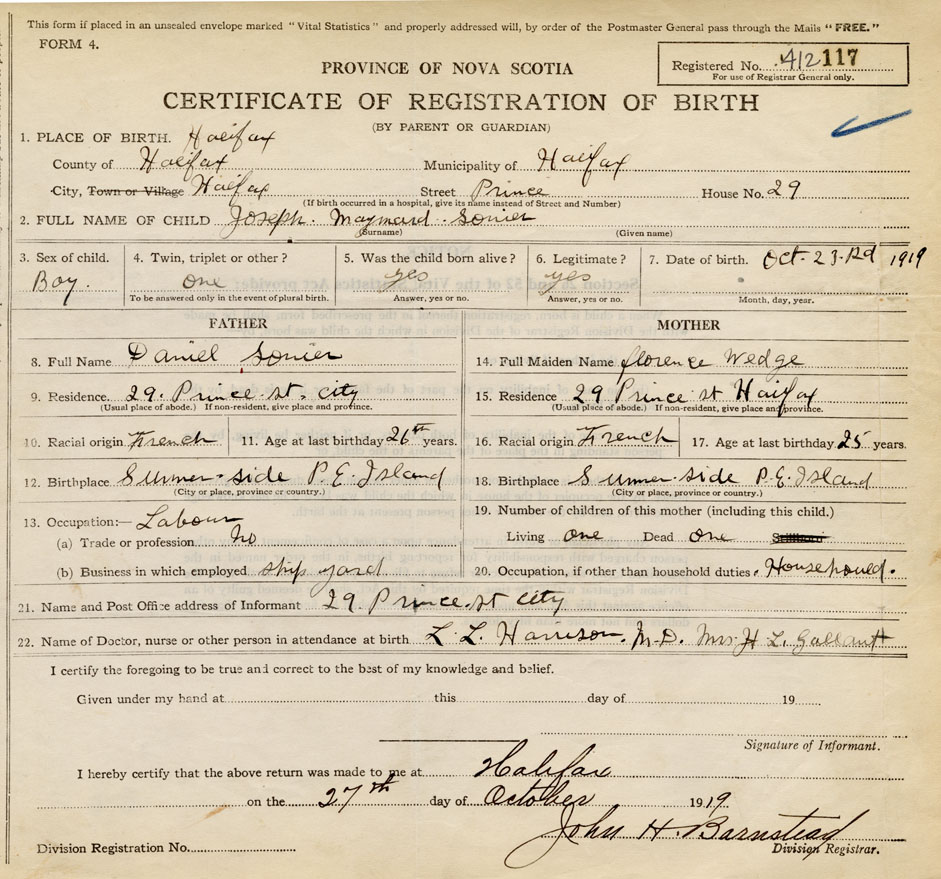 This form if placed in an unsealed envelope marked "Vital Statistics" and properly addressed will, by order of the Postmaster General pass through the Mails "FREE."
FORM 4.
Registered No. 412117
For use of Registrar General only.
PROVINCE OF NOVA SCOTIA
CERTIFICATE OF REGISTRATION OF BIRTH
(BY PARENT OR GUARDIAN)
1. PLACE OF BIRTH. Halifax
County of Halifax Municipality of Halifax
City, Town or Village Halifax Street Prince House No. 29
(If birth occurred in a hospital, give its name instead of Street and Number)
2. FULL NAME OF CHILD Joseph Maynard Sonier
(Surname) (Given name)
3. Sex of child. 4. Twin, triplet or other? 5. Was the child born alive? 6. Legitimate? 7. Date of birth. Oct. 23.Rd 1919
Boy. one yes yes
To be answered only in the event of plural birth. Answer, yes or no. Answer, yes or no. Month, day, year.
FATHER MOTHER
8. Full Name Daniel Sonier 14. Full Maiden Name florence Wedge
9. Residence. 29. Prince. st. city 15. Residence 29 Prince st Halifax
(Usual place of abode.) If non-resident, give place and province. (Usual place of abode.) If non-resident, give place and province.
10. Racial origin French 11. Age at last birthday 26th years. 16. Racial origin French 17. Age at last birthday 25 years.
12. Birthplace Summer-side P.E. Island 18. Birthplace Summer-side P.E. Island
(City or place, province or country.) (City or place, province or country.)
13. Occupation:— Labour 19. Number of children of this mother (including this child.)
(a) Trade or profession No Living one Dead one
(b) Business in which employed ship yard 20. Occupation, if other than household duties. Househould.
21. Name and Post Office address of Informant 29. Prince. st city
22. Name of Doctor, nurse or other person in attendance at birth L. L. Harrison. M.D. Mrs H L Gallant
I certify the foregoing to be true and correct to the best of my knowledge and belief.
Given under my hand at this day of 19
Signature of Informant.
I hereby certify that the above return was made to me at Halifax
on the 27th day of October 1919.
John H. Barnstead
Division Registration No. Division Registrar.